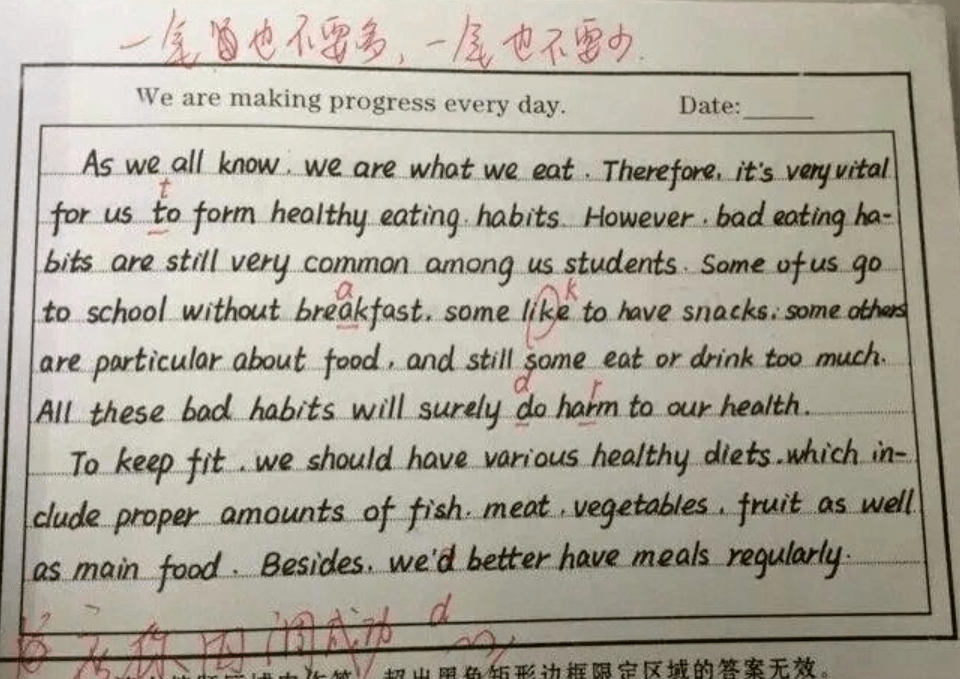 一尾也不要多，一尾也不要少.
We are making progress every day. Date:
As we all know, we are what we eat. Therefore, it's very vital
t
for us to form healthy eating habits. However, bad eating ha-
bits are still very common among us students. Some of us go
a k
to school without breakfast, some like to have snacks, some others
are particular about food, and still some eat or drink too much.
d r
All these bad habits will surely do harm to our health.
To keep fit, we should have various healthy diets, which in-
clude proper amounts of fish, meat, vegetables, fruit as well
as main food. Besides, we'd better have meals regularly.
你 成功 d
超出黑色矩形边框限定区域的答案无效。